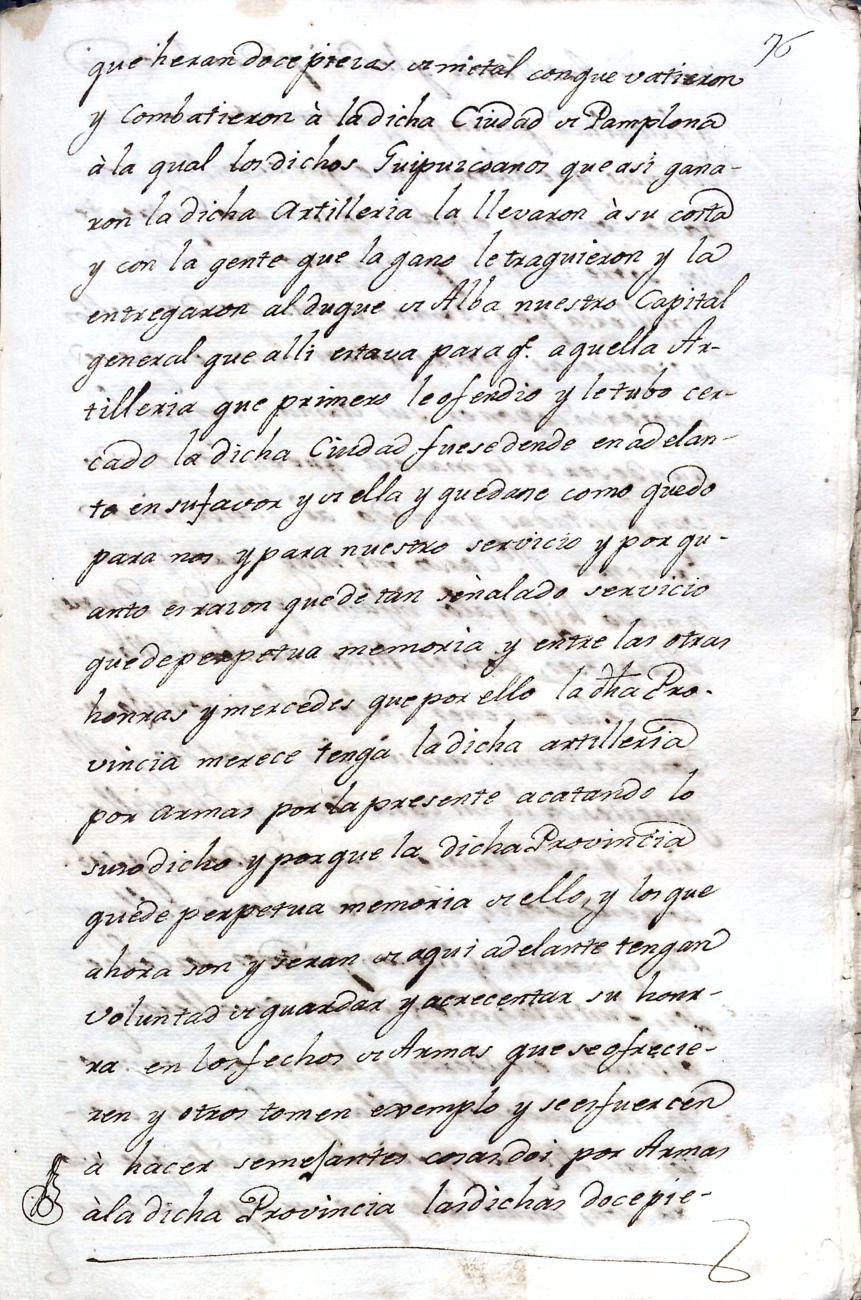 76
que heran doce piezas de metal con que vatieron
y Combatieron à la dicha Ciudad de Pamplona
à la qual los dichos Guipuzcoanos que asi gana-
ron la dicha Artilleria la llevaron à su costa
y con la gente que la gano le traguieron y la
entregaron al duque de Alba nuestro Capital
general que alli estava para q.e aquella Ar-
tilleria que primero le ofendio y le tubo cer-
cado la dicha Ciudad fuese dende en adelan-
te en su favor y de ella y quedase como quedo
para nos y para nuestro servicio y por qu-
anto es razon que de tan señalado servicio
quede perpetua memoria y entre las otras
honras y mercedes que por ello la dha Pro-
vincia merece tenga la dicha artilleria
por armas por la presente acatando lo
suso dicho y porque la dicha Provincia
quede perpetua memoria de ello, y los que
ahora son y seran de aqui adelante tengan
voluntad de guardar y acrecentar su honr-
ra en los fechos de Armas que se ofrecie-
ren y otros tomen exemplo y se esfuercen
à hacer semejantes cosas doi por Armas
à la dicha Provincia las dichas doce pie-